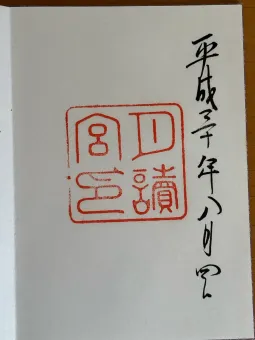 平成三十年八月四日
月讀
宮印